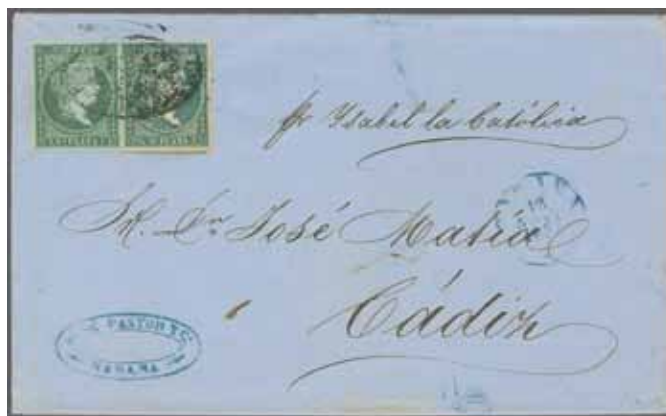 pr Ysabel la Católica
Sr. Dn José Matía
Cádiz
PASTOR Y Cª
HABANA